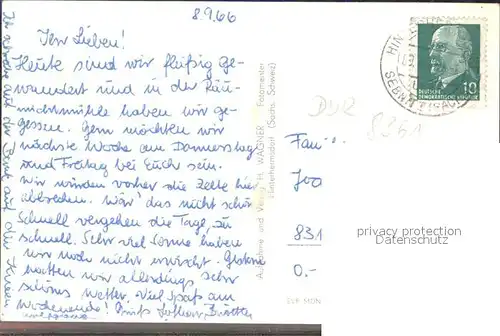 8.9.66
Ihr Lieben!
Heute sind wir fleißig ge-
wandert und in der Räu-
michtmühle haben wir ge-
gessen. Gern möchten wir
nächste Woche am Donnerstag
und Freitag bei Euch sein.
Wir würden vorher die Zelte hier
abbrechen. Wär' das nicht schön
Schnell vergehen die Tage, zu
schnell. Sehr viel Sonne haben
wir noch nicht erwischt. Gestern
hatten wir allerdings sehr
schönes Wetter. Viel Spaß am
Wochenende!
Aufnahme und Verlag H. WAGNER Fotomeister
Hinterhermsdorf (Sächs. Schweiz)
SEBNITZ
DEUTSCHE
DEMOKRATISCHE REPUBLIK
10
DDR
8361
Fam
831
0.-
privacy protection
Datenschutz